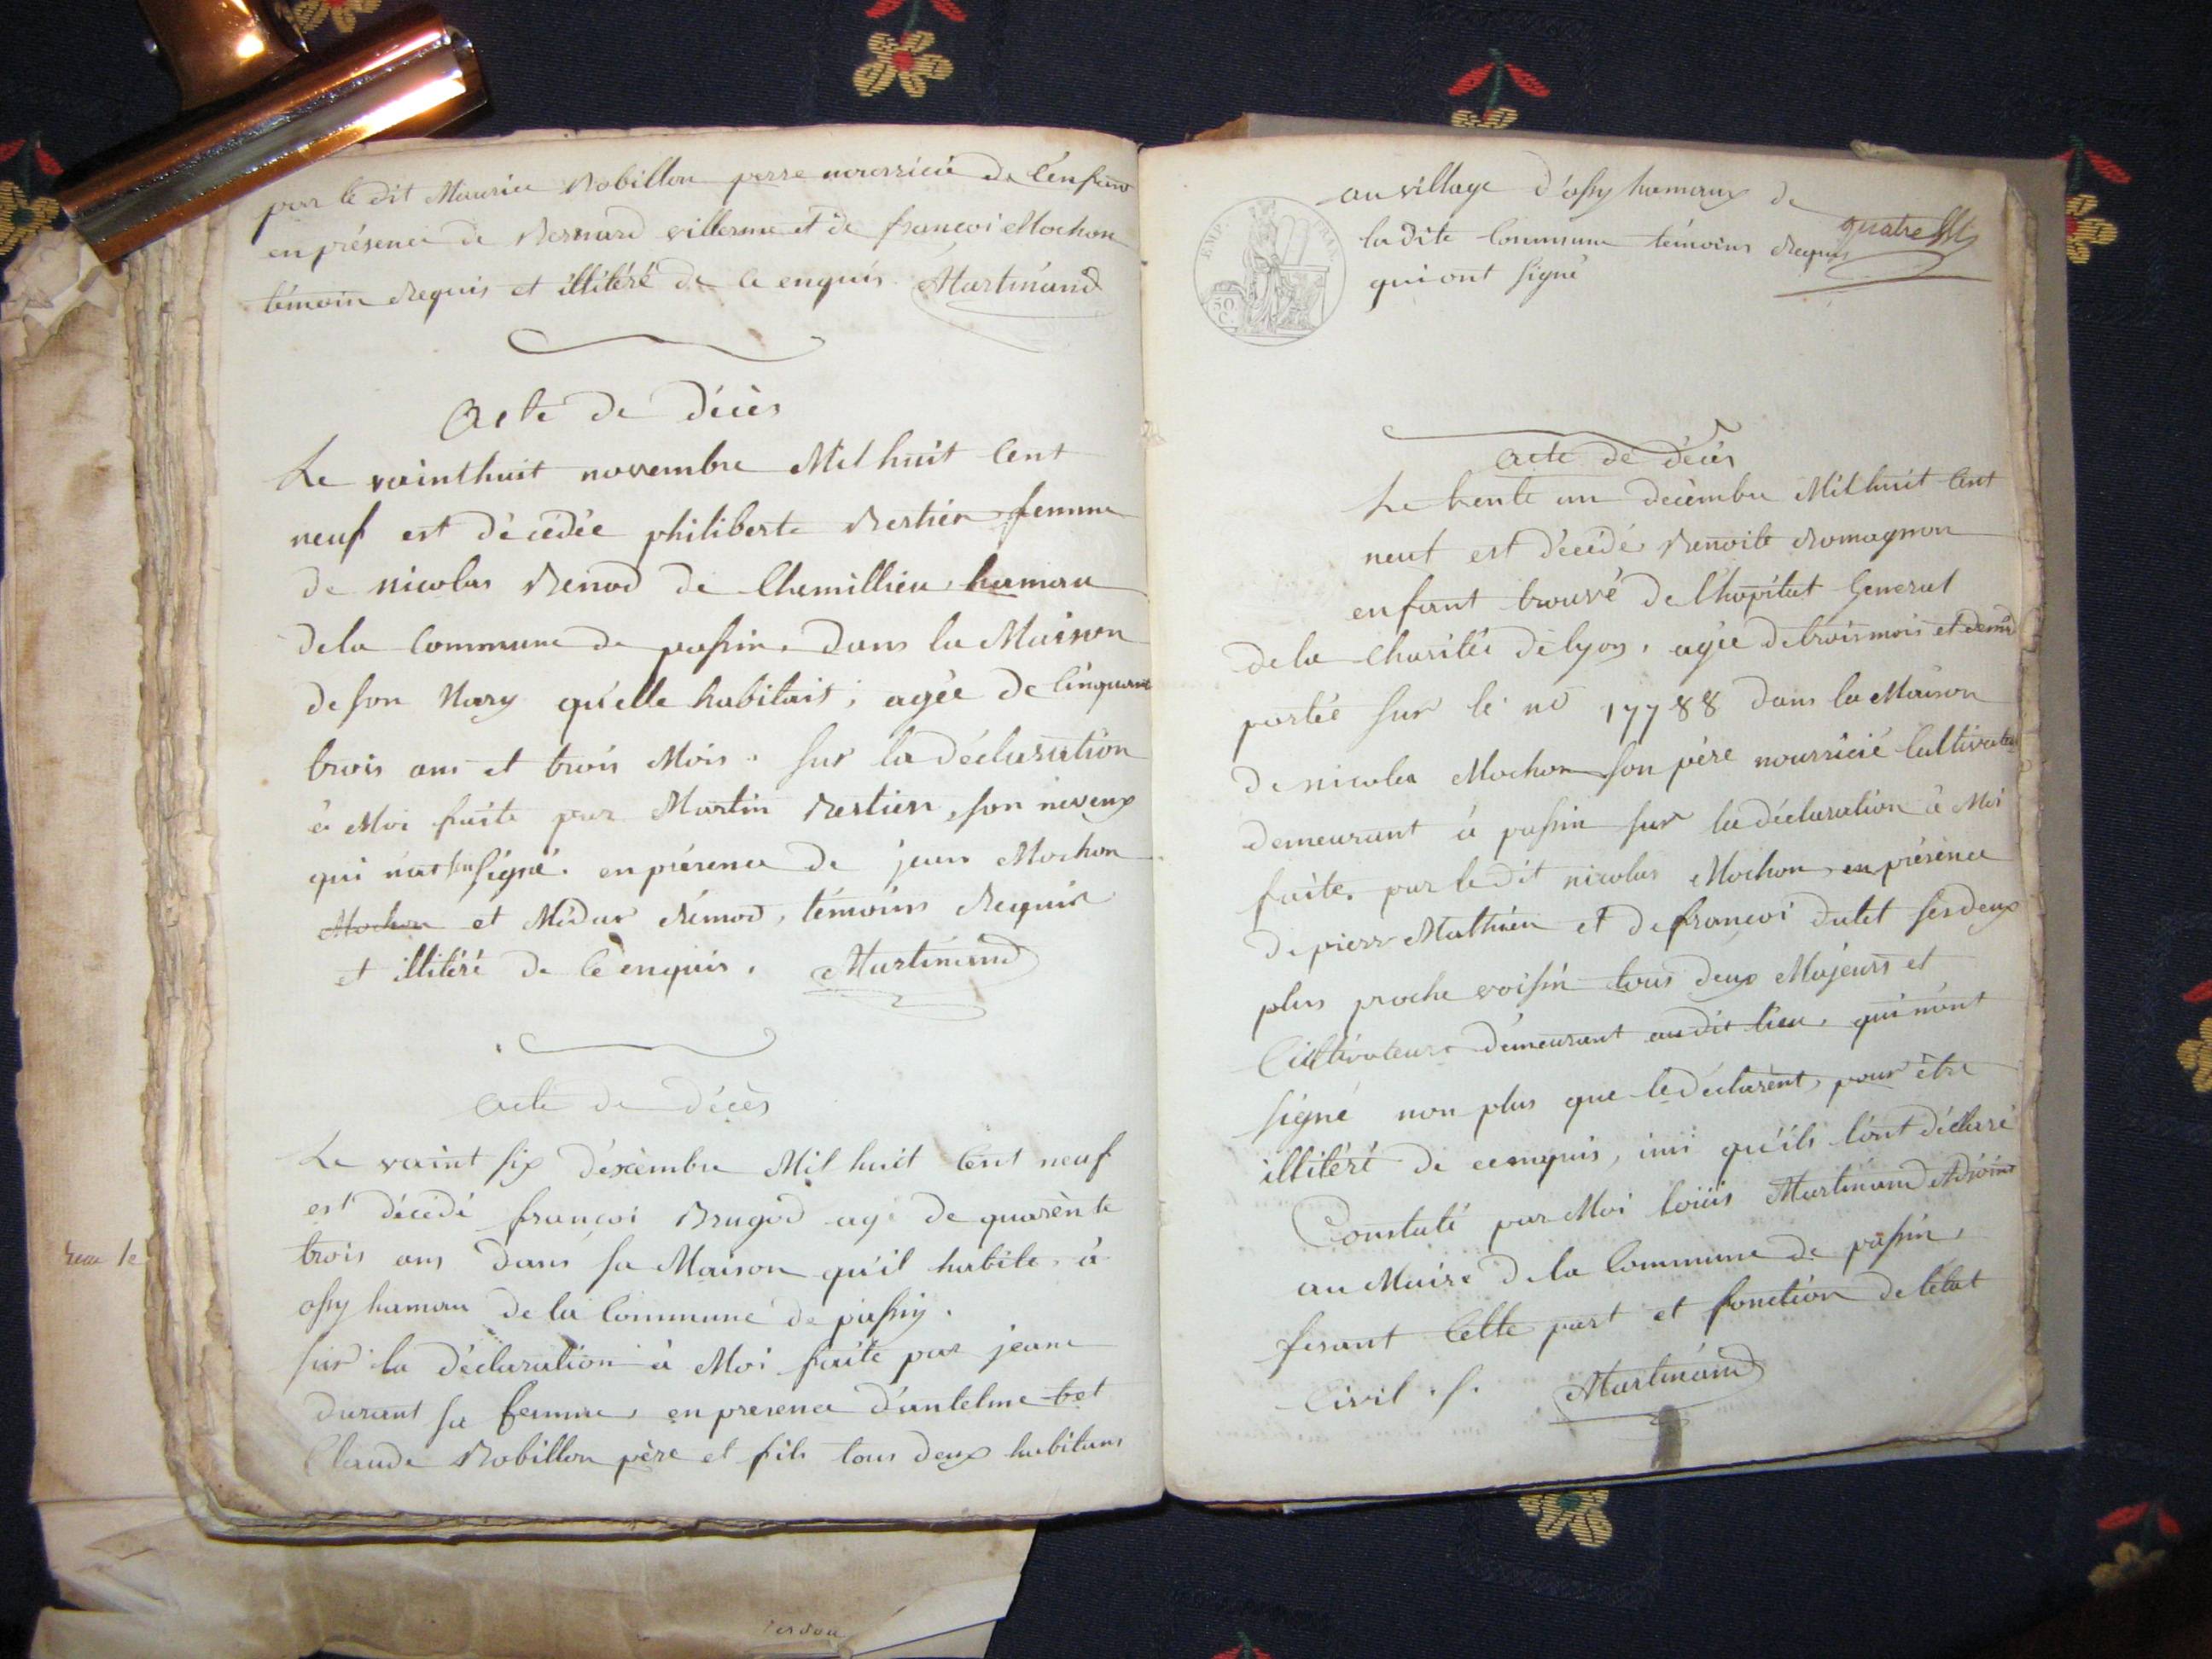 par le dit Maurice Robillon perre nourricié de l'enfant
en présence de Bernard villerme et de françoi Mochon
témoin Requis et illitéré de ce enquis. Martinand
Acte de décès
Le vainthuit novembre Mil huit Cent
neuf est décédée philiberte Bertier femme
de nicolas Benod de Chemillieu hamau
dela Commune de passin, dans la Maison
de son Mary qu'elle habitait, agée de Cinquante
trois ans et trois Mois. sur la déclaration
à Moi faite par Martin Bertier, son neveux
qui nat su signé. en présence de jean Mochon
Mochon et Médar Rémod, témoins Requis
et illitéré de Ce enquis. Martinand
Acte de décès
Le vaint six décembre Mil huit Cent neuf
est décédé françoi Brugod agé de quarènte
trois ans dans sa Maison qu'il habite, à
ossy hamau de la Commune de passin.
sur la déclaration à Moi faite par jeane
durant sa femme, en presence d'antelme et
Claude Robillon père et fils tous deux habitans
EMP. FRAN.
50 C.
au village d'ossy hamaux de
la dite Commune témoins Requis
qui ont signé
quatre
Acte de décès
Le trente un decèmbre Mil huit Cent
neuf est décédé Benoite Romagnon
enfant trouvé de l'hopital General
de la Charitée de lyon, agée de trois mois et demi
portée sur le no 17788 dans la Maison
de nicolas Mochon son père nourricié Cultivateur
demeurant à passin sur la déclaration à Moi
faite, par le dit nicolas Mochon, en présence
de pierre Mathieu et de françoi dulet ses deux
plus proche voisin tous deux Majeurs et
Cultivateurs demeurant au dit lieu, qui n'ont
signé non plus que le déclarent, pour être
illitéré de ce enquis, insi qu'ils l'ont déclaré
Constaté par Moi loüis Martinand Adjoint
au Maire de la Commune de passin,
fesant Cette part et fonction de l'etat
Civil. S. Martinand